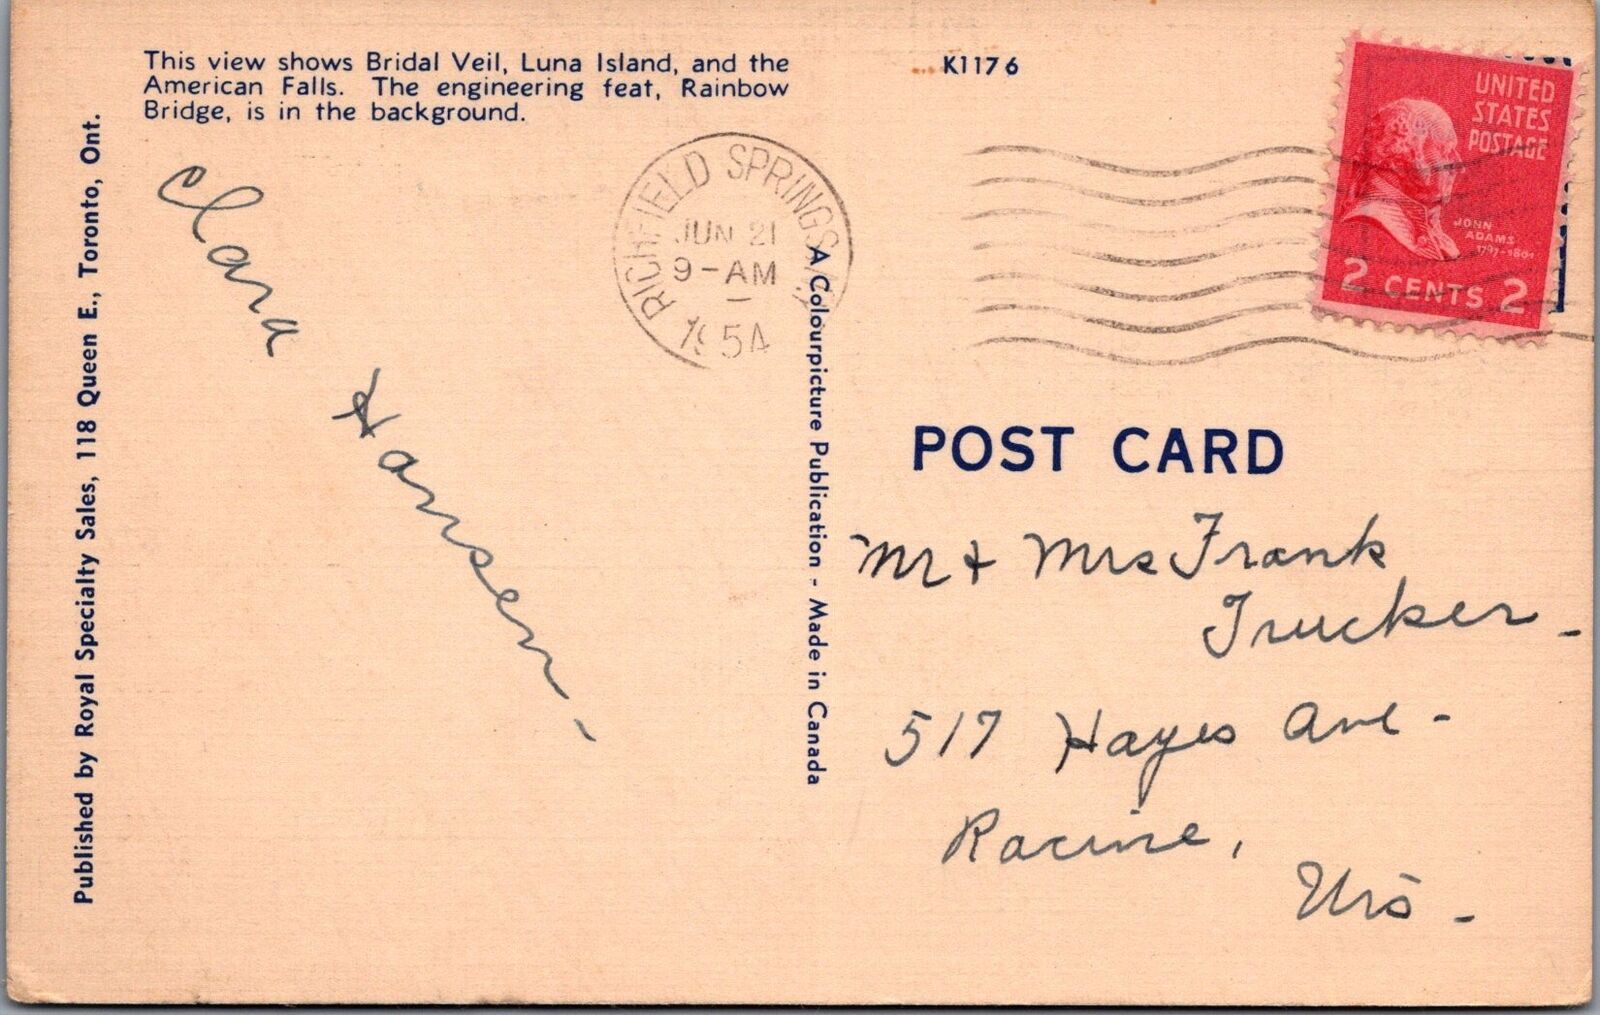 This view shows Bridal Veil, Luna Island, and the
American Falls. The engineering feat, Rainbow
Bridge, is in the background.
K1176
UNITED
STATES
POSTAGE
JOHN
ADAMS
1797-1801
2 CENTS 2
RICHFIELD SPRINGS
JUN 21
9-AM
1954
Published by Royal Specialty Sales, 118 Queen E., Toronto, Ont.
Clara Hansen -
A Colourpicture Publication - Made in Canada
POST CARD
Mr + Mrs Frank
Trucker -
517 Hayes Ave -
Racine,
Wis -